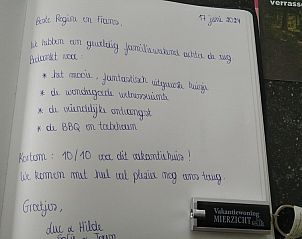 Beste Regine en Frans,
17 juni 2024
We hebben een geweldig familieweekend achter de rug.
Bedankt voor:
* het mooie, fantastisch uitgeruste huisje
* de wondergoede
* de vriendelijke ontvangst
* de BBQ en
Kortom: 10/10 voor dit vakantiehuis!
We komen met heel veel plezier nog eens terug.
Groetjes,
Luc & Hilde
Vakantiewoning
MIERZICHT